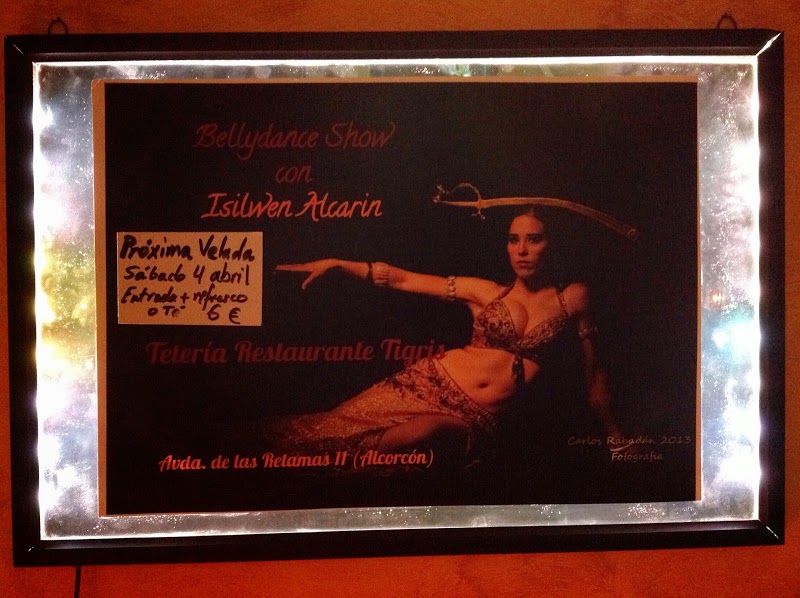 Bellydance Show
con
Isilwen Alcarin
Próxima Velada
Sábado 4 abril
Entrada + refresco
o Té 6 €
Tetería Restaurante Tigris
Avda. de las Retamas 11 (Alcorcón)
Carlos Rabadán 2013
Fotografía